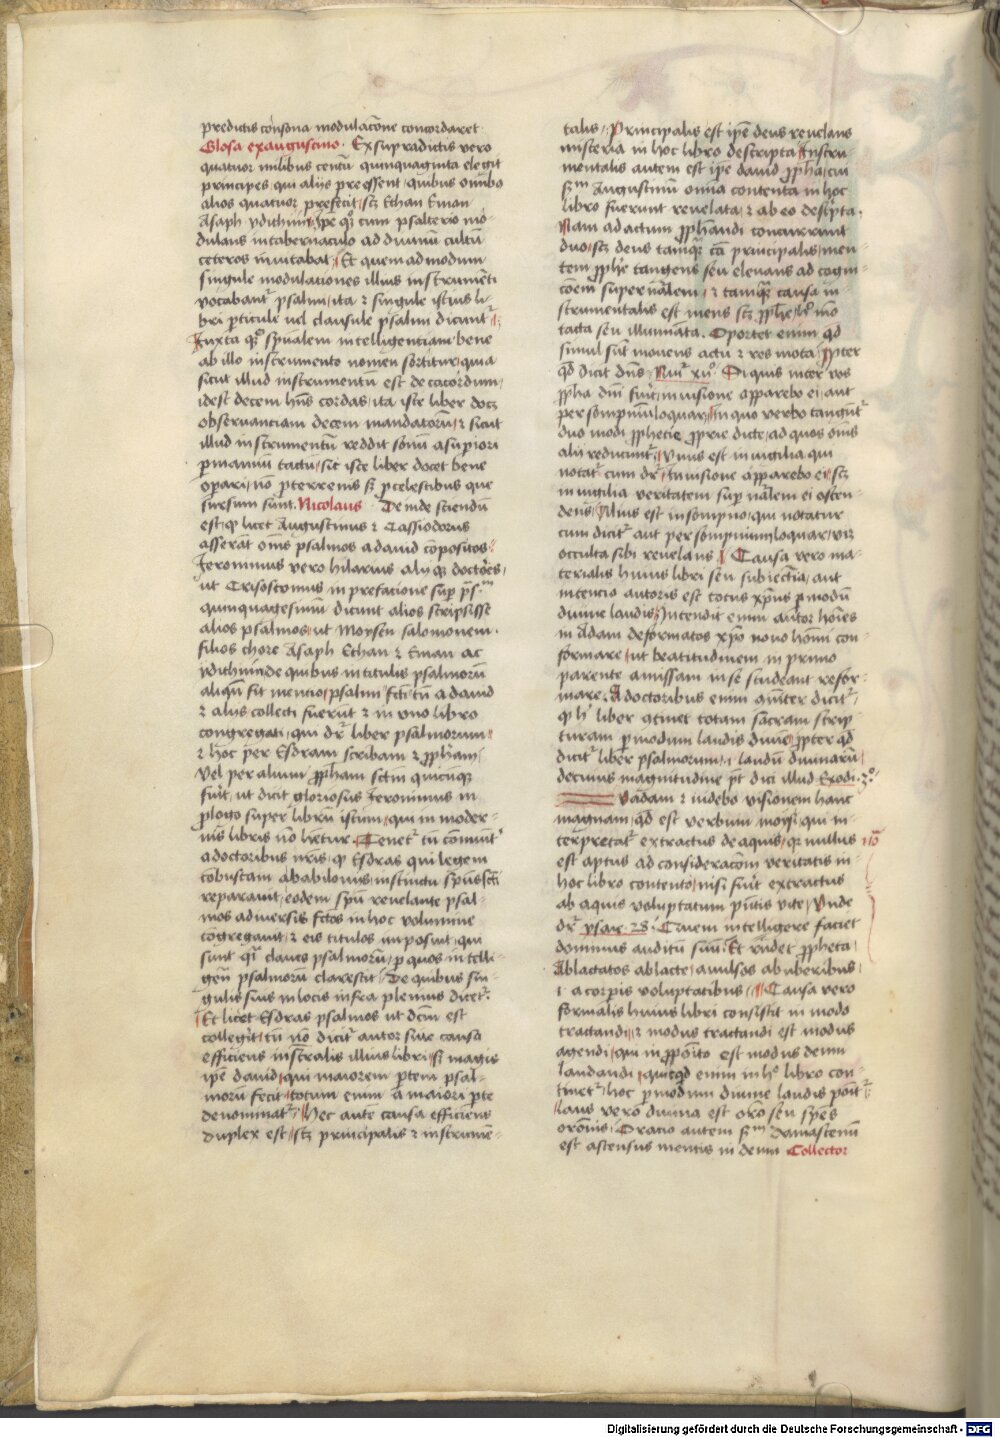 predictis consona modulacōne concordaret
Glosa ex augustino. Ex supradictis vero
quatuor milibus centū quinquaginta elegit
principes qui alijs preessent quibus omībo
alios quatuor prefecit scz Ethan Eman
Asaph ydithim Ipe q̄ cum psalterio mo
dulans in tabernaculo ad diuinū cultū
ceteros inuitabat Et quem ad modum
singule modulationes illius instrumēti
vocabant psalmi ita ⁊ singule istius li-
bri pticule uel clausule psalmi dicunt
Iuxta q̄ spūalem intelligenciam bene
ab illo instrumento nomen sortitur quia
sicut illud instrumentū est decacordum
idest decem hn̄s cordas ita iste liber docz
obseruanciam decem mandatorū ⁊ sicut
illud instrumentū reddit sonū a supiori
p manuū tactū sic iste liber docet bene
opari nō p terrenis sz p celestibus que
sursum sunt. Nicolaus Deinde sciendū
est q̄ licet Augustinus ⁊ Cassiodorus
asserāt oms̄ psalmos a dauid cōpositos
Jeronimus vero hilarius alij q̄ doctores
ut Crisostomus in prefacione sup ps.
quinquagesimū dicunt alios scripsisse
alios psalmos ut Moysen salomonem
filios chore Asaph Ethan ⁊ Eman ac
ydithim de quibus in titulis psalmorū
aliqn̄ fit mencio psalmi fcti tn̄ a dauid
⁊ alijs collecti fuerūt ⁊ in vno libro
congregati qui dr̄ liber psalmorum
⁊ hoc per Esdram scribam ⁊ pphām
Vel per alium pphām sctm̄ quicūq̄
fuit ut dicit gloriosus Jeronimus in
plogo super librū istum qui in moder-
nis libris nō hētur. Tenet tn̄ cōmunit
a doctoribus nr̄is q̄ Esdras qui legem
cōbustam a babilonijs instinctu spūs scti
reparauit eodem spū reuelante psal-
mos a diuersis fctos in hoc volumine
cōgregauit ⁊ eis titulos imposuit qui
sunt q̄i claues psalmorū p quos intelli-
gen̄ psalmorū clarescit De quibus sin-
gulis suis in locis infra plenius dicet
Et licet Esdras psalmos ut dcm̄ est
collegit tn̄ nō dicit autor siue causa
efficiens instr̄alis illius libri sz magis
ipe dauid qui maiorem ptem psal-
morū fecit totum enim a maiori pte
denominat Hec autē causa efficiens
duplex est scz principalis ⁊ instrumē-
talis Principalis est ipē deus reuelans
misteria in hoc libro descripta Instru-
mentalis autem est ipe dauid pphā cui
sm̄ Augustinū omnia contenta in hoc
libro fuerunt reuelata ⁊ ab eo descripta
Nam ad actum pphāndi concurrunt
duo scz deus tamq̄ cā principalis men-
tem pphē tangens seu eleuans ad cogni-
cōem supernālem ⁊ tamq̄ causa in-
strumentalis est mens scz pphē
tacta seu illuminata. Oportet enim qd
simul sūt mouens actu ⁊ res mota ppter
qd dicit dn̄s Nūi xijo. Si quis inter vos
pphā dn̄i fuit in uisione apparebo ei aut
per sompnium loquar In quo verbo tangūt
duo modi pphecie pprie dicte ad quos oms̄
alij reducunt Vnus est in uigilia qui
notat cum dr̄ In uisione apparebo ei scz
in uigilia veritatem supnālem ei osten-
dens Alius est in sompno qui notatur
cum dicit aut per sompnium loquar viz
occulta sibi reuelans Causa vero ma-
terialis huius libri seu subiectīa aut
intencio autoris est totus xp̄us p modū
diuine laudis Intendit enim autor hoīes
in Adam deformatos xp̄o nouo homī con-
formare ut beatitudinem in primo
parente amissam in se studeant refor-
mare. A doctoribus enim cōmīter dicit
q̄ h liber cōtinet totam sacram scrip-
turam p modum laudis diuīe ppter qd
dicit liber psalmorum .i. laudū diuinarū
de cuius magnitudine pt dici illud Exodi. 3o
Vadam ⁊ uidebo visionem hanc
magnam qd est verbum moysi qui in-
terpretat extractus de aquis q̄ nullus
est aptus ad consideracōm veritatis in
hoc libro contento nisi fuit extractus
ab aquis voluptatum pn̄tis vite Vnde
dr̄ ysaie. 28. Quem intelligere faciet
dominus auditū suū Et rn̄det ppheta
Ablactatos a lacte auulsos ab uberibus
.i. a corpis voluptatibus Causa vero
formalis huius libri consistit in modo
tractandi ⁊ modus tractandi est modus
agendi qui in pposito est modus deum
laudandi quicqd enim in ho libro con-
tinet hoc p modum diuine laudis ponit
laus vero diuina est orō seu spēs
orōnis. Oratio autem sm̄ damascenū
est ascensus mentis in deum Collector
Digitalisierung gefördert durch die Deutsche Forschungsgemeinschaft - DFG